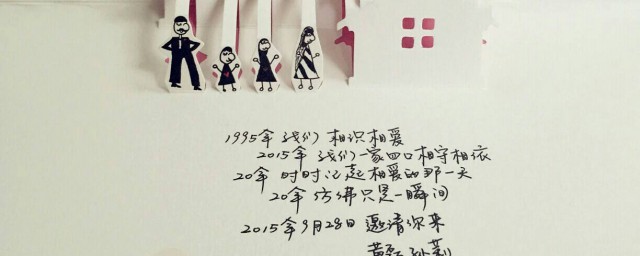 1995年 我们 相识相爱
2015年 我们一家四口相守相依
20年 时时记起相爱的那一天
20年 仿佛只是一瞬间
2015年9月28日 邀请你来
黄磊 孙莉